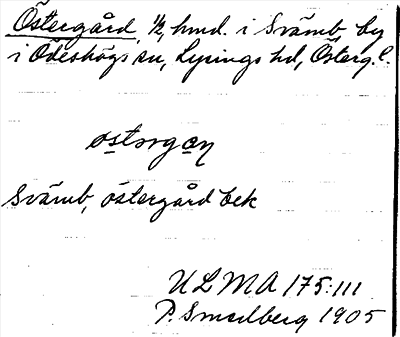 Östergård, 1/2, hmd. i Svämb, by
i Ödeshögs sn, Lysings hd, Österg. l.
östərgan
Svämb, östergård bek
ULMA 175:111
P. Smedberg 1905